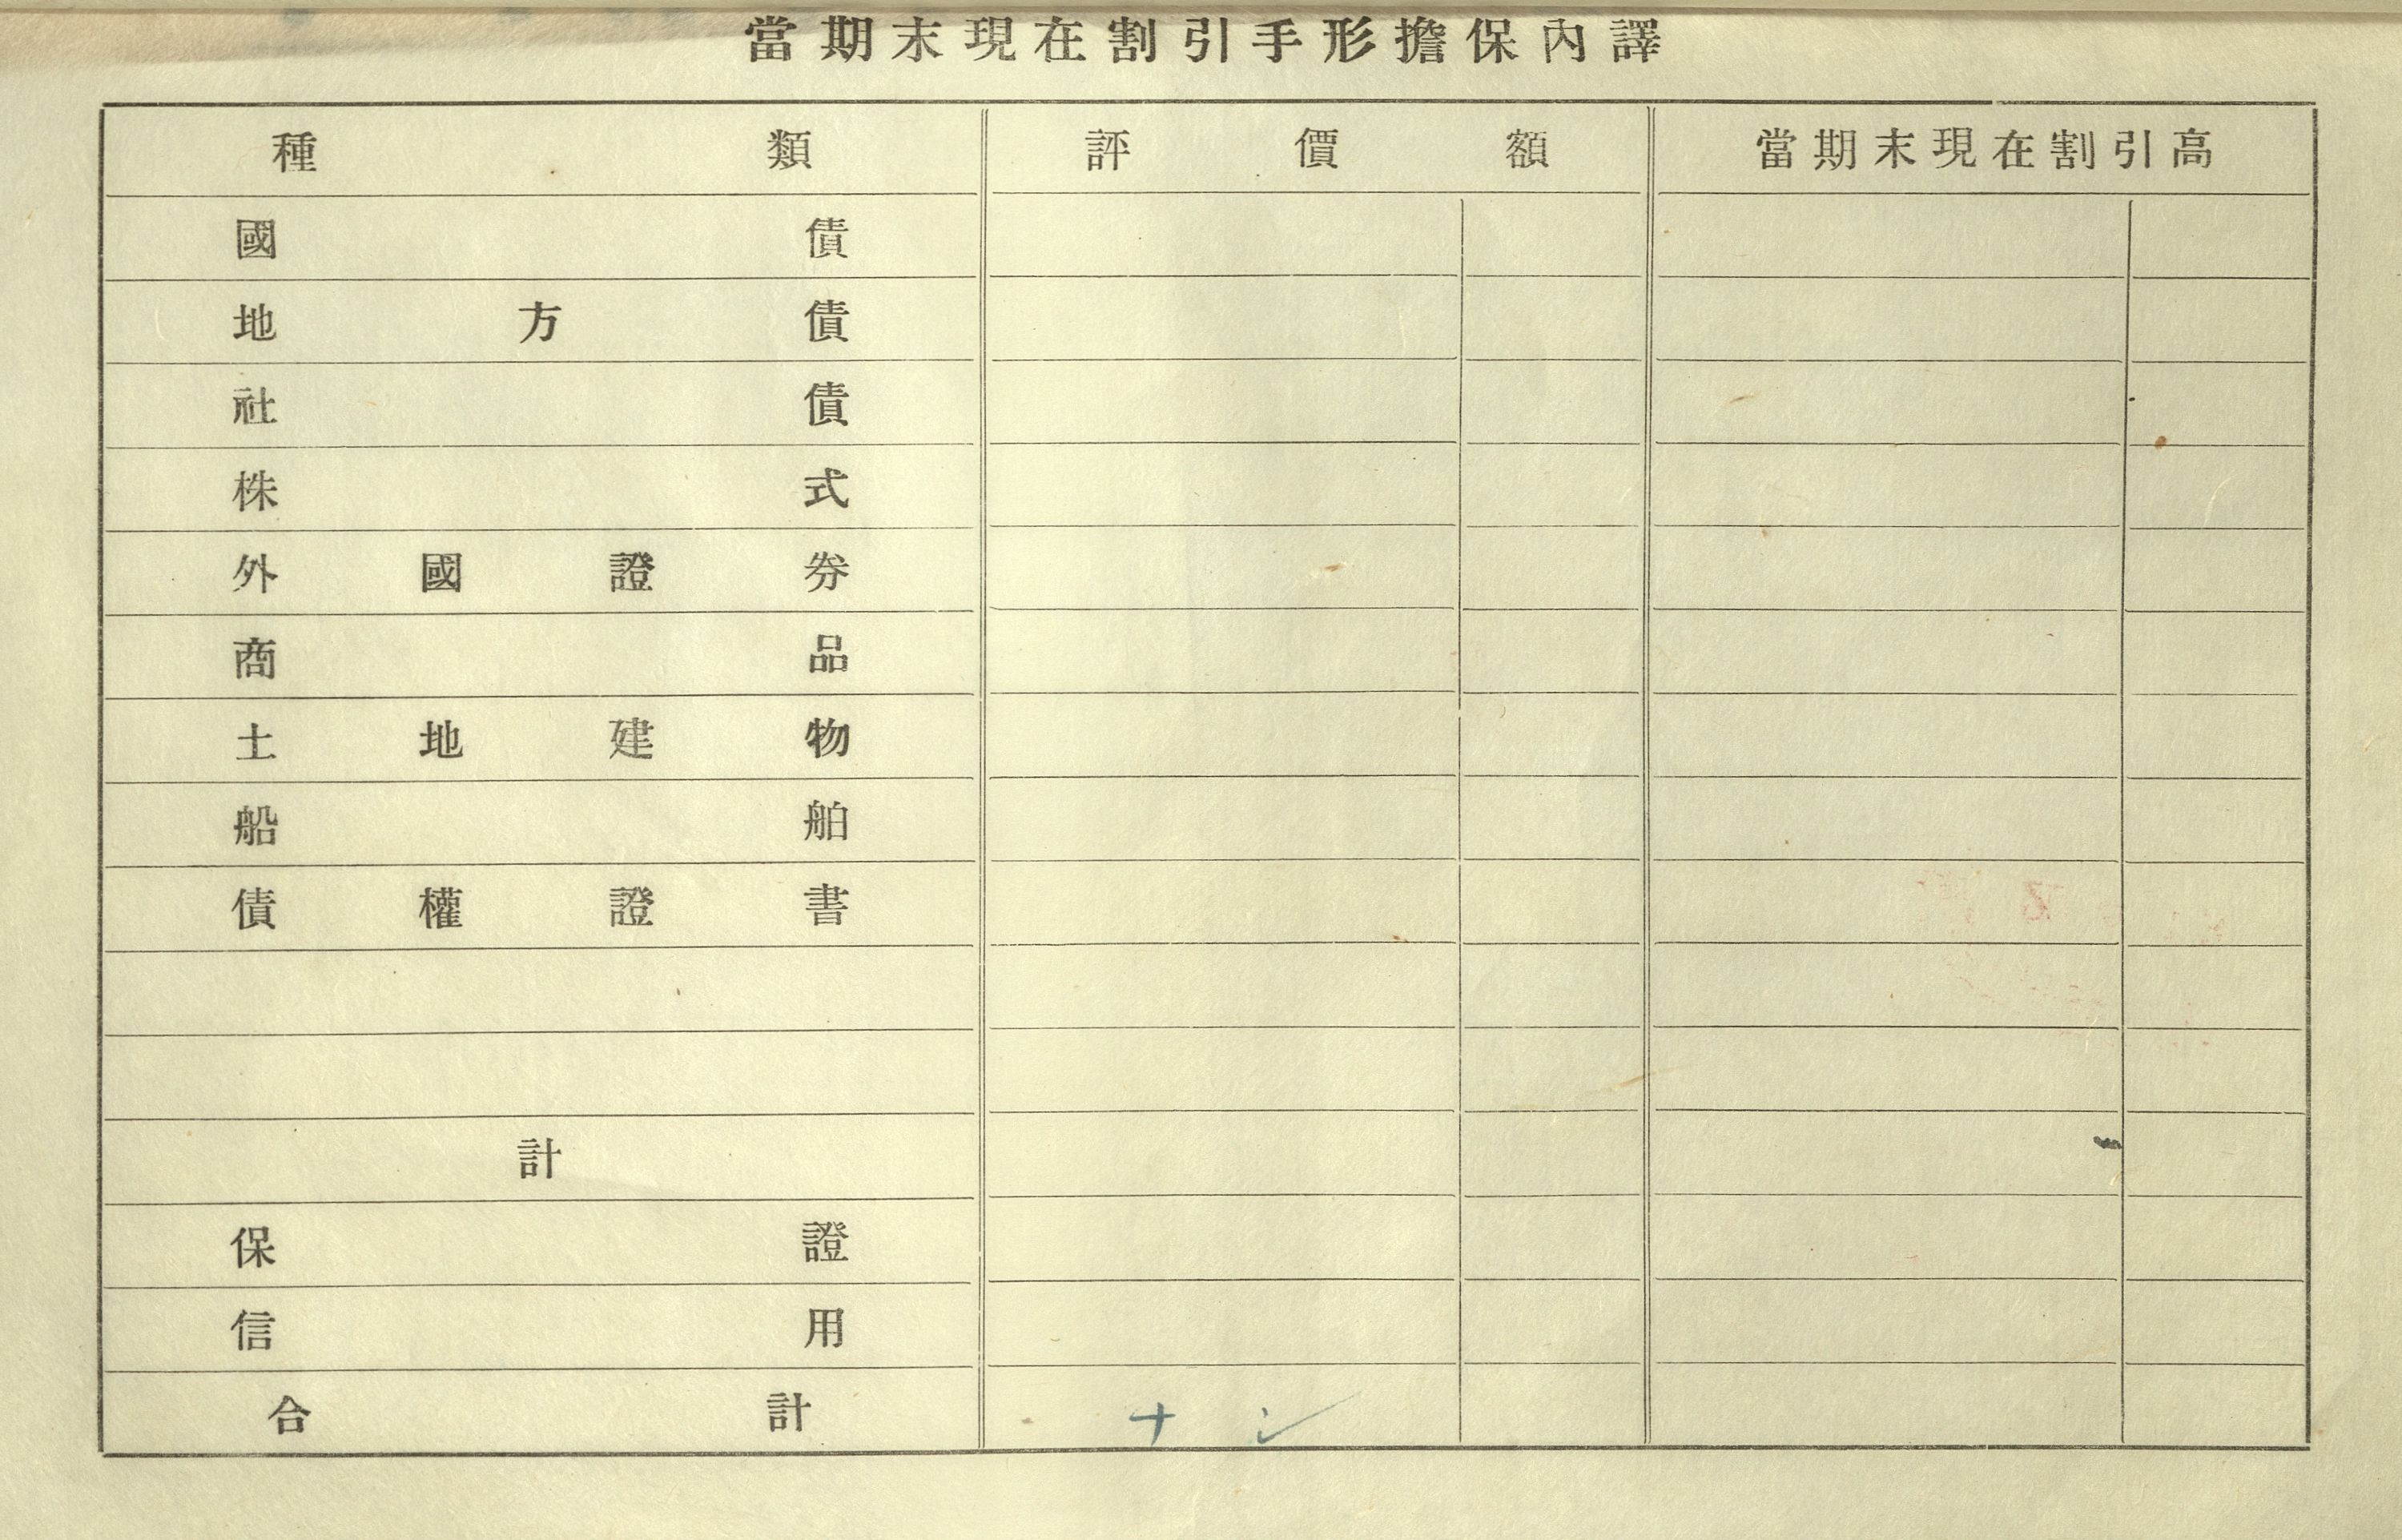 當期末現在割引手形擔保內譯
種類 評價額 當期末現在割引高
國債
地方債
社債
株式
外國證券
商品
土地建物
船舶
債權證書
計
保證
信用
合計 ナシ